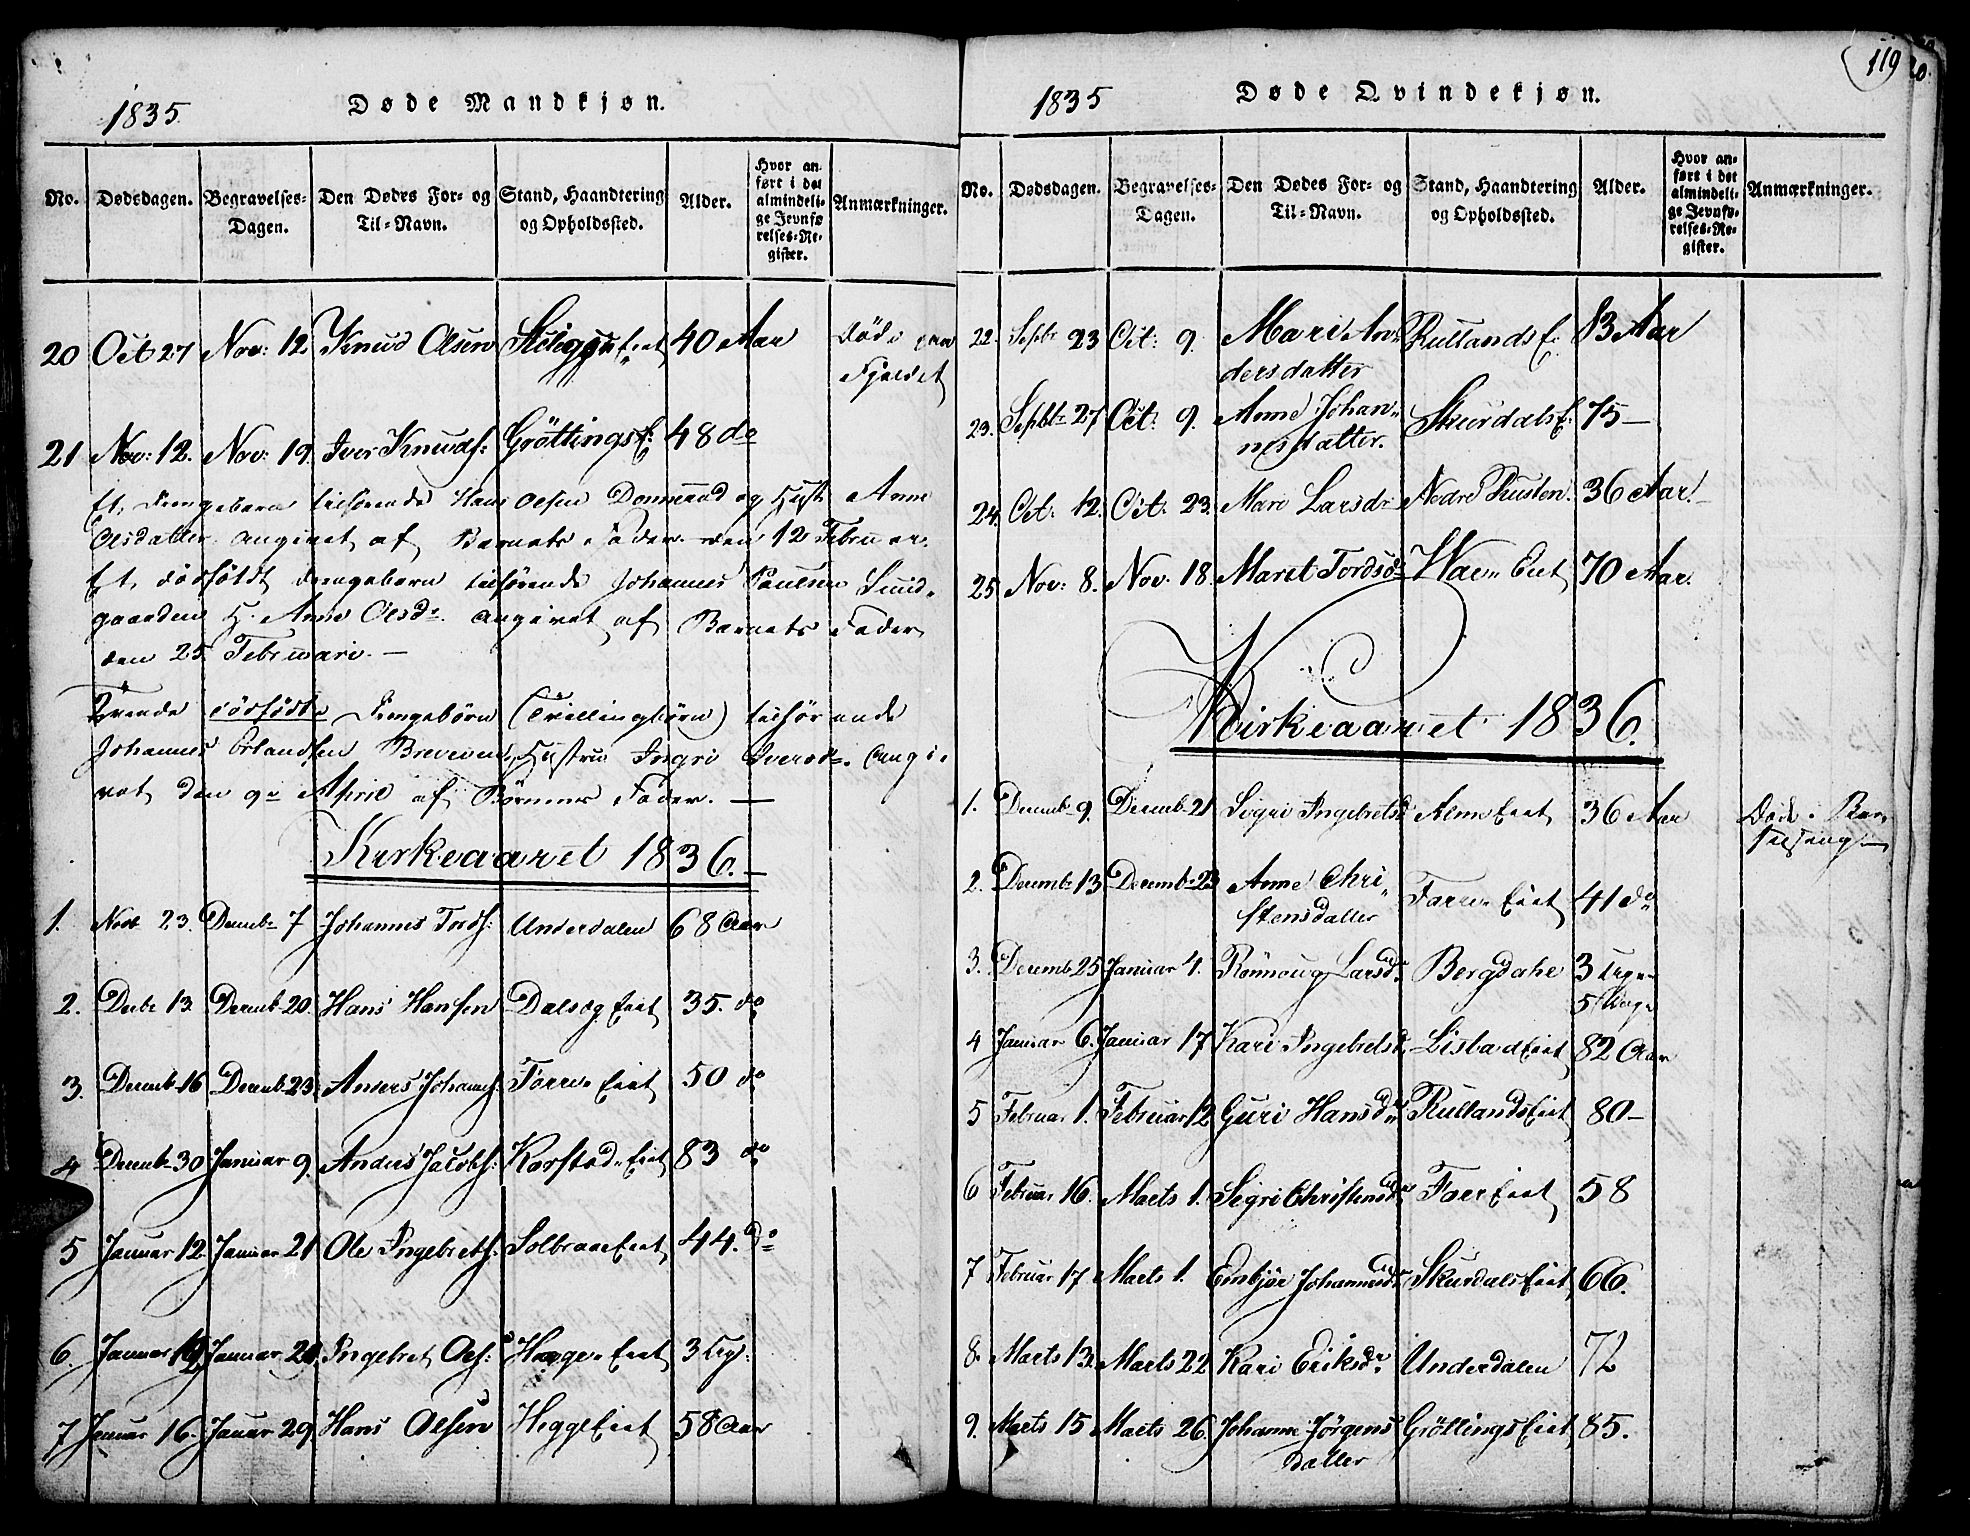 1835 Døde Mandkjøn.
No. Dødsdagen. Begravelses-Dagen. Den Dødes For- og Til-Navn. Stand, Haandtering og Opholdssted. Alder. Hvor anført i det almindelige Jevnførelses-Register. Anmærkninger.
20 Oct: 27 Nov: 12 Knud Olsen 40 Aar Døde paa
Fjeldet
21 Nov: 12. Nov: 19. Iver Knuds: Gröttings E: 48 do
Et Drengebarn tilhörende Hans Olsen Donnaad og Hust: Anne
Olsdatter angivet af Barnets Fader den 12 Februar.
Et dödfödt Drengebarn tilhörende Johannes Paulsen Smid-
gaarden H. Anne Olsdr. angivet af Barnets Fader
den 25 Februari. —
Tvende dödfödte Drengebörn (Tvillingbörn) tilhörende
Johannes Erlandsen Hustru Ingri Iversdr. angi-
vet den 9de April af Börnenes Fader. —
Kirkeaaret 1836. —
1. Novb 23. Decembr 7 Johannes Tords: Underdalen 68 Aar
2. Decbr 13 Decemb 20. Hans Hansen Dalseg Eiet 35. do
3. Decemb 16 Decemb 23. Anders Johanns: Farre- Eiet 50 do
4 Decemb 30 Januar 9. Anders Jacobs: Korstad- Eiet 83 do
5 Januar 12 Januar 21 Ole Ingebrets: Solbraae Eiet 44. do
6 Januar 12 Januar 21 Ingebret Ols: Hage- Eiet 3 Ug:
7 Januar 16. Januar 29. Hans Olsen Hegge Eiet 58 Aar
119
1835 Døde Qvindekjøn.
No. Dødsdagen. Begravelses-Dagen. Den Dødes For- og Til-Navn. Stand, Haandtering og Opholdssted. Alder. Hvor anført i det almindelige Jevnførelses-Register. Anmærkninger.
22. Septbr 23 Oct: 9. Mari An-
dersdatter Rullands E. 83 Aar
23. Septbr 27 Oct: 9. Anne Johan-
nesdatter. Skurdals E: 75 —
24. Oct: 12. Oct: 23. Mari Larsdr Nedre Rusten. 36 Aar
25. Nov: 8. Nov. 18. Maret Tordsdr Eiet 70 Aar.
Kirkeaaret 1836.
1. Decembr 9 Decembr 21 Sigri Ingebretsd Alme Eiet 36 Aar Döde i Bar-
selseng
2. Decembr 13 Decembr 23 Anne Chri-
stensdatter Farre- Eiet 41 do
3. Decemb 25 Januar 4. Rönnoug Larsdr Bergdahl 3 Uger
5 Dage
4 Januar 6. Januar 17 Kari Ingebretsd Lisbad Eiet 82 Aar
5 Februar 1. Februar 12 Guri Hansdr Rullands Eiet 80 —
6 Februar 16. Marts 1. Sigri Christensdr Farre Eiet 58
7 Februar 17 Marts 1. Embjör Johannesdr Skurdals Eiet 66.
8. Marts 13. Marts 22 Kari Eriksdr Underdalen 72
9. Marts 15 Marts 26. Johanne Jörgens
datter Gröttings Eiet 85.